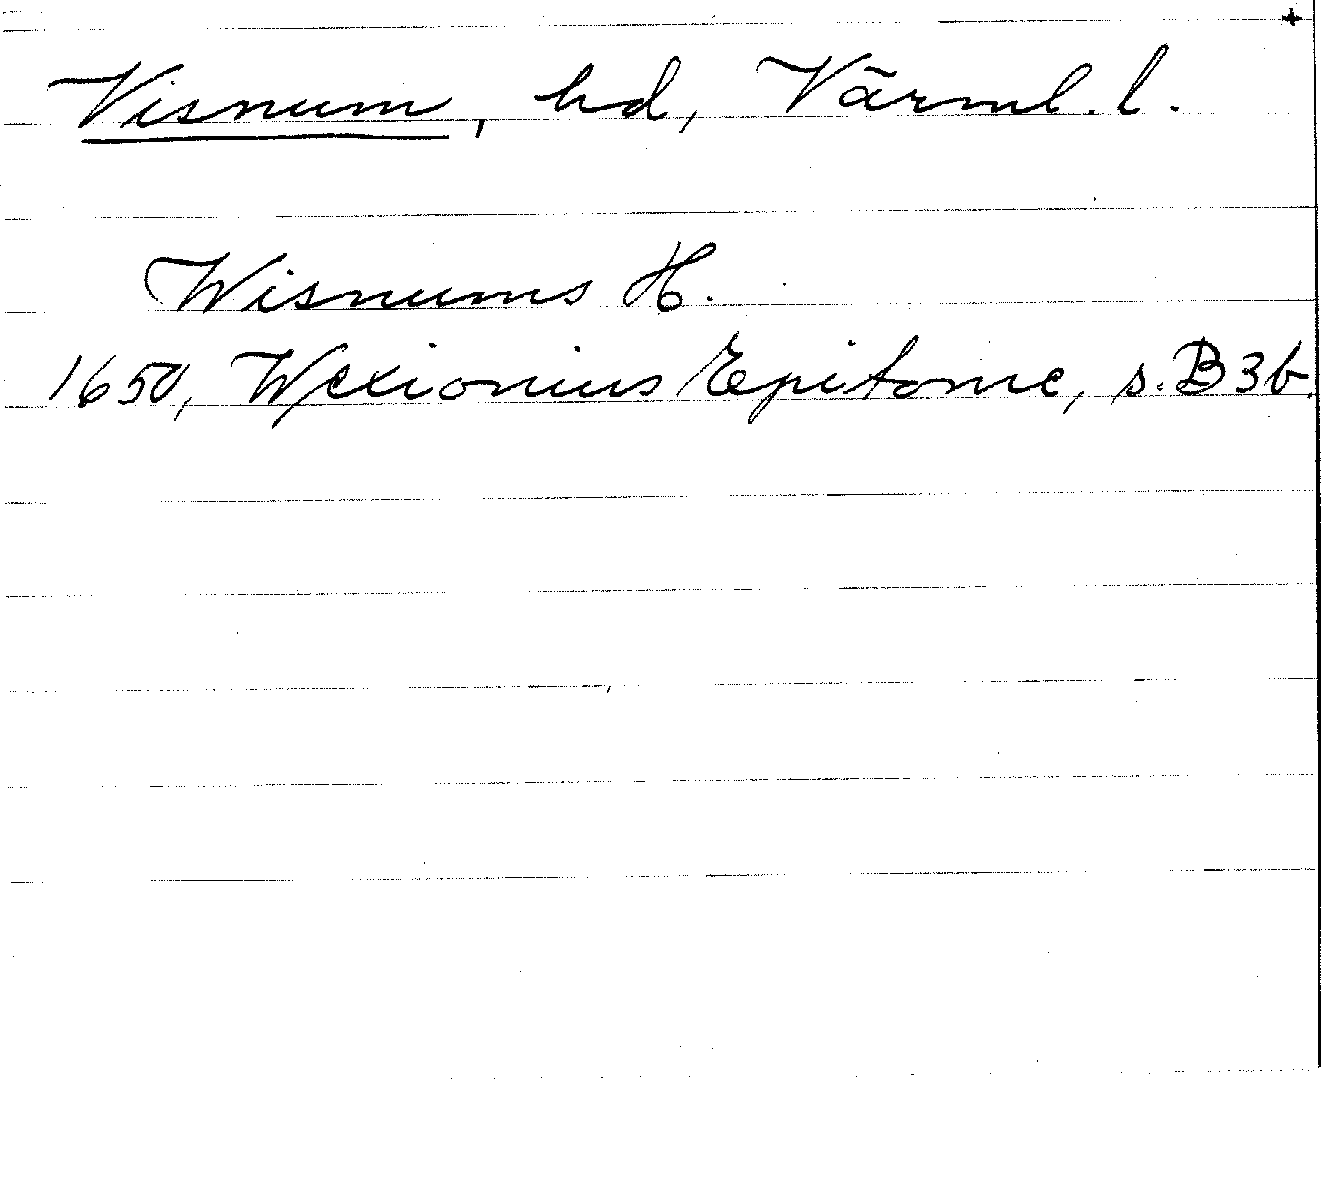 +
Visnum, hd, Värml. l.
Wisnums H.
1650, Wexionius Epitome, s. B3b.